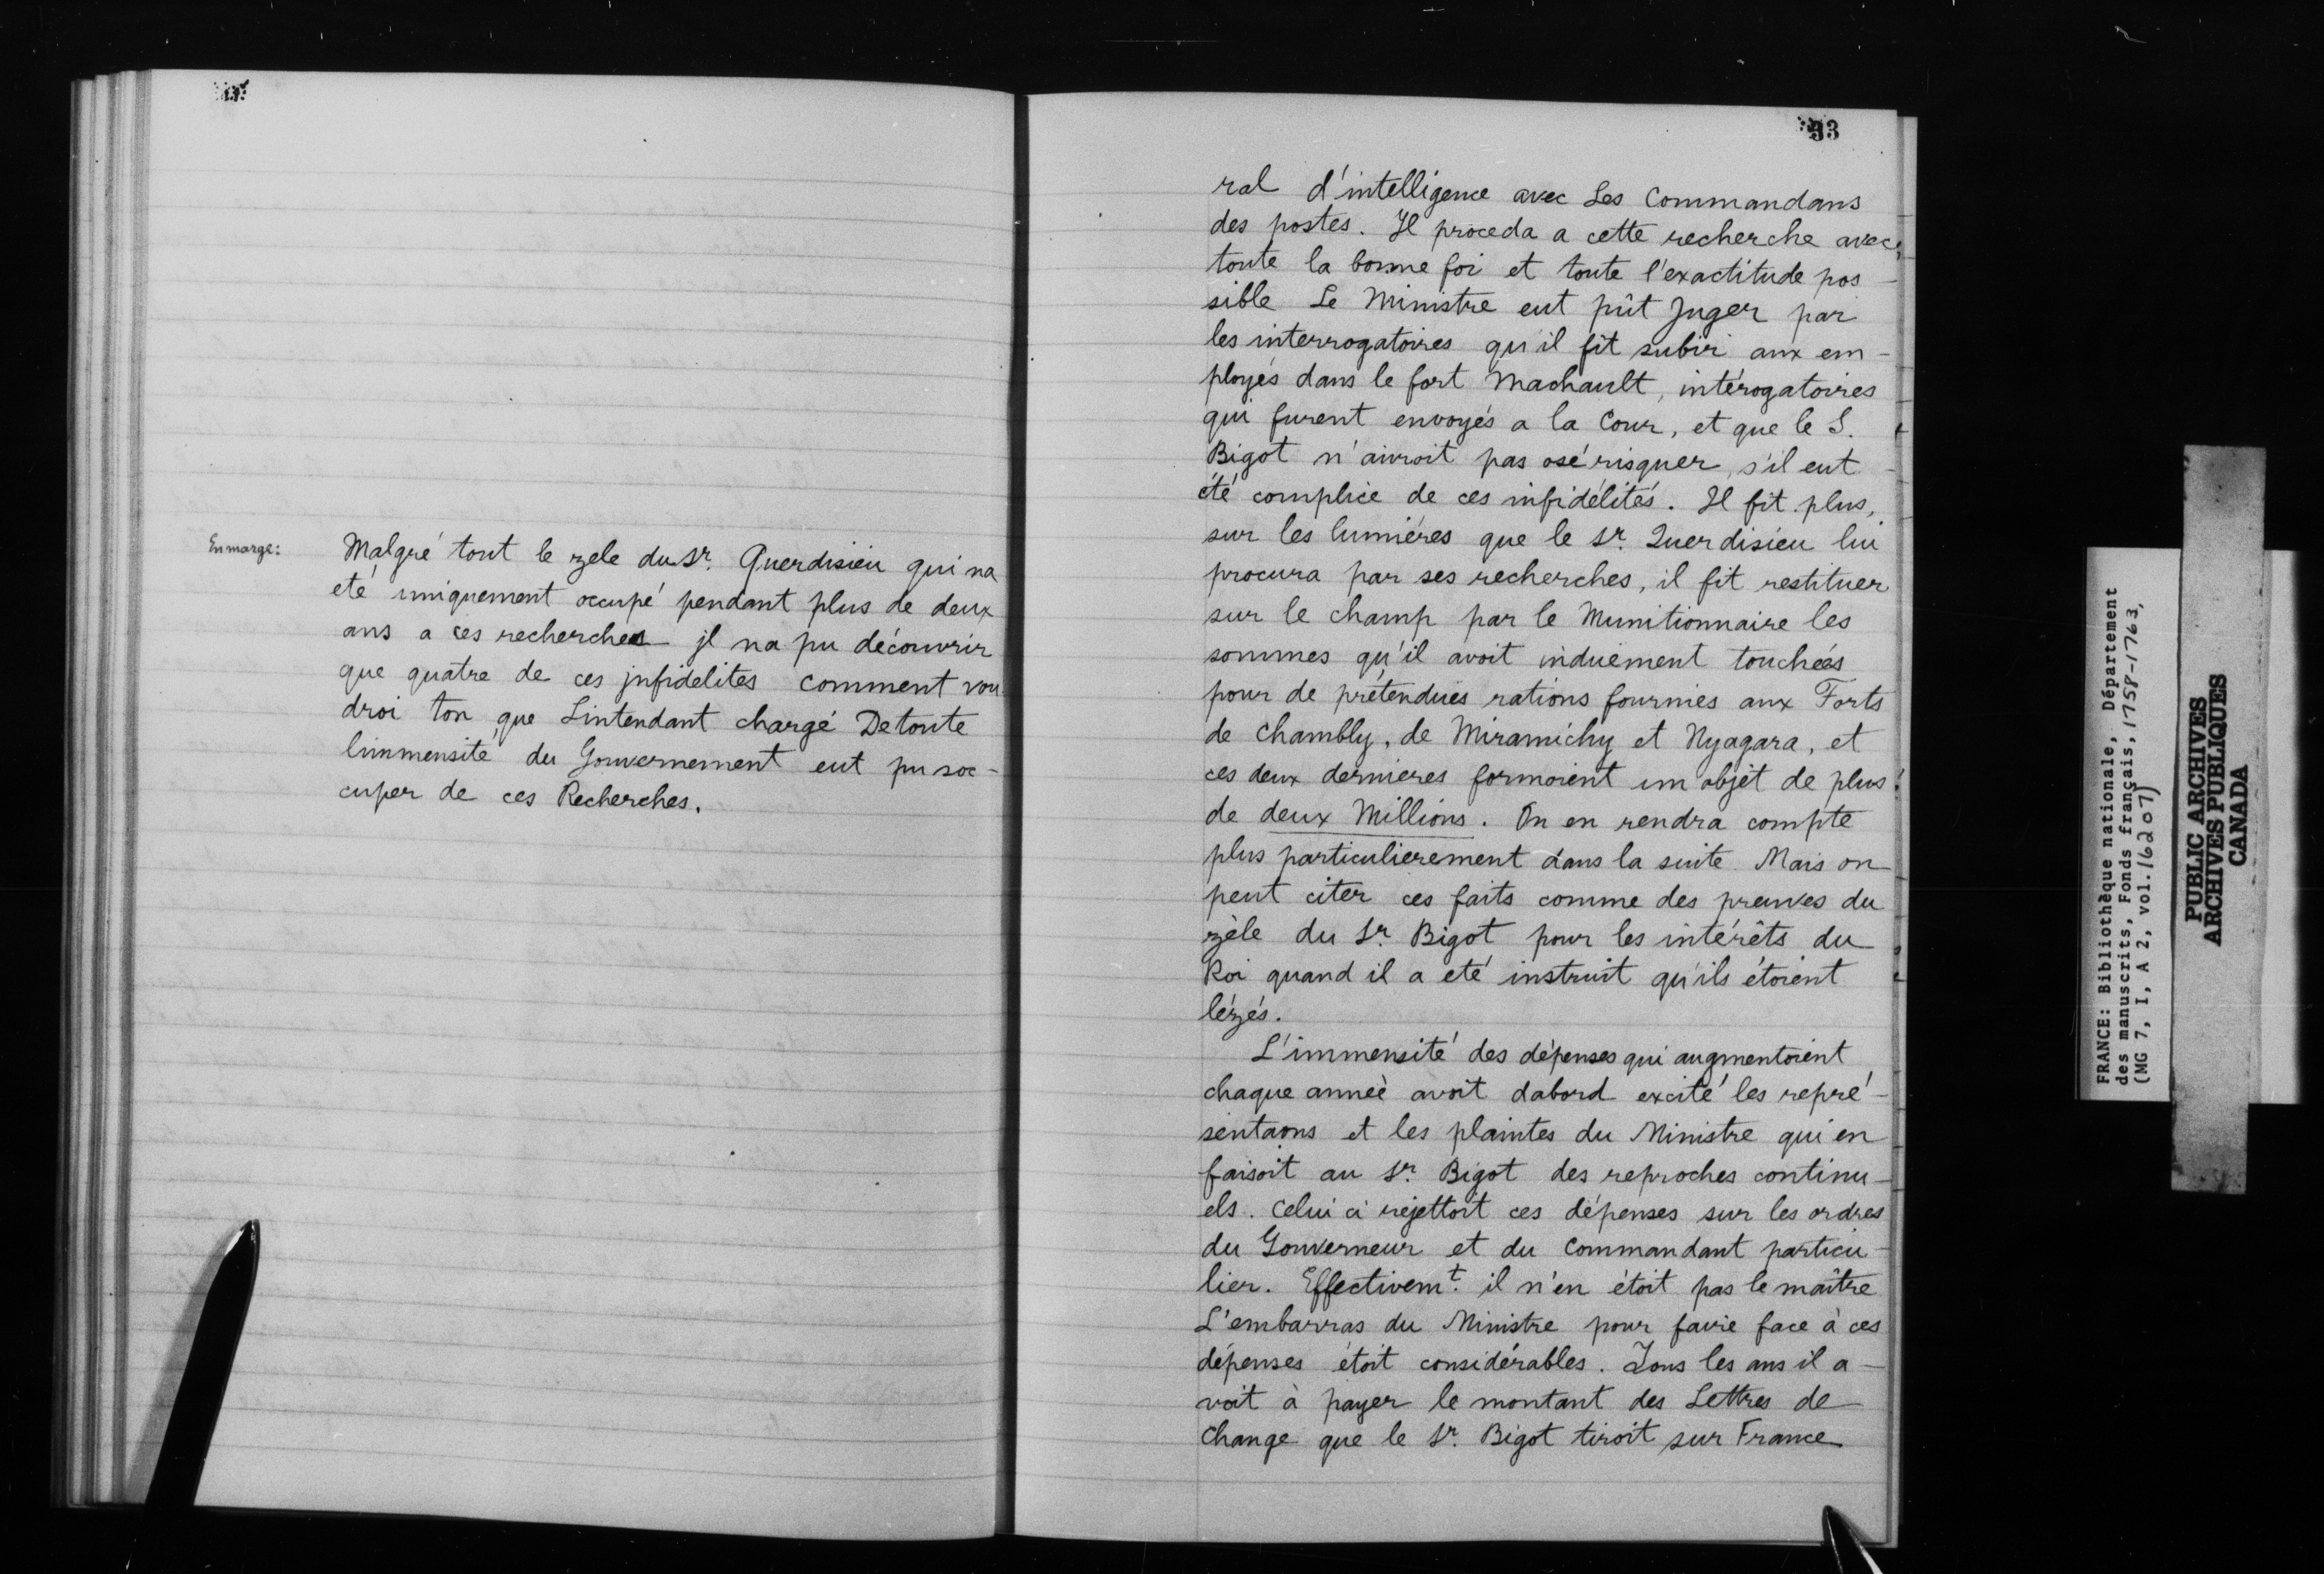 En marge:
Malgré tout le zele du Sr. Querdisieu qui na
eté uniquement occupé pendant plus de deux
ans a ces recherches jl na pu découvrir
que quatre de ces jnfidelites comment vou
droi ton que Lintendant chargé De toute
limmensité du Gouvernement eut pu soc-
cuper de ces Recherches.
33
ral d'intelligence avec Les Commandans
des postes. Il proceda a cette recherche avec
toute la bonne foi et toute l'exactitude pos
sible Le Ministre eut pût Juger par
les interrogatoires qu'il fit subir aux em-
ployés dans le fort Machault, intérogatoires
qui furent envoyés a la Cour, et que le S.
Bigot n'auroit pas osé risquer, s'il eut
été complice de ces infidélités. Il fit plus,
sur les lumiéres que le Sr. Querdisieu lui
procura par ses recherches, il fit restituer
sur le champ par le Munitionnaire les
sommes qu'il avoit induement touchées
pour de prétendues rations fournies aux Forts
de Chambly, de Miramichy et Nyagara, et
ces deux dernieres formoient un objet de plus
de deux Millions. On en rendra compte
plus particulierement dans la suite. Mais on
peut citer ces faits comme des preuves du
zèle du Sr. Bigot pour les intérêts du
Roi quand il a eté instruit qu'ils étoient
lézés.
L'immensité des dépenses qui augmentoient
chaque anneè avoit dabord excité les repré-
sentaons et les plaintes du Ministre qui en
faisoit au Sr. Bigot des reproches continu-
els. Celui ci rejettoit ces dépenses sur les ordres
du Gouverneur et du Commandant particu-
lier. Effectivemt. il n'en étoit pas le maître
L'embarras du Ministre pour faire face à ces
dépenses étoit considérables. Tous les ans il a-
voit à payer le montant des Lettres de
Change que le Sr. Bigot tiroit sur France
FRANCE: Bibliothèque nationale, Département
des manuscrits, Fonds français, 1758-1763,
(MG 7, I, A 2, vol. 16207)
PUBLIC ARCHIVES
ARCHIVES PUBLIQUES
CANADA